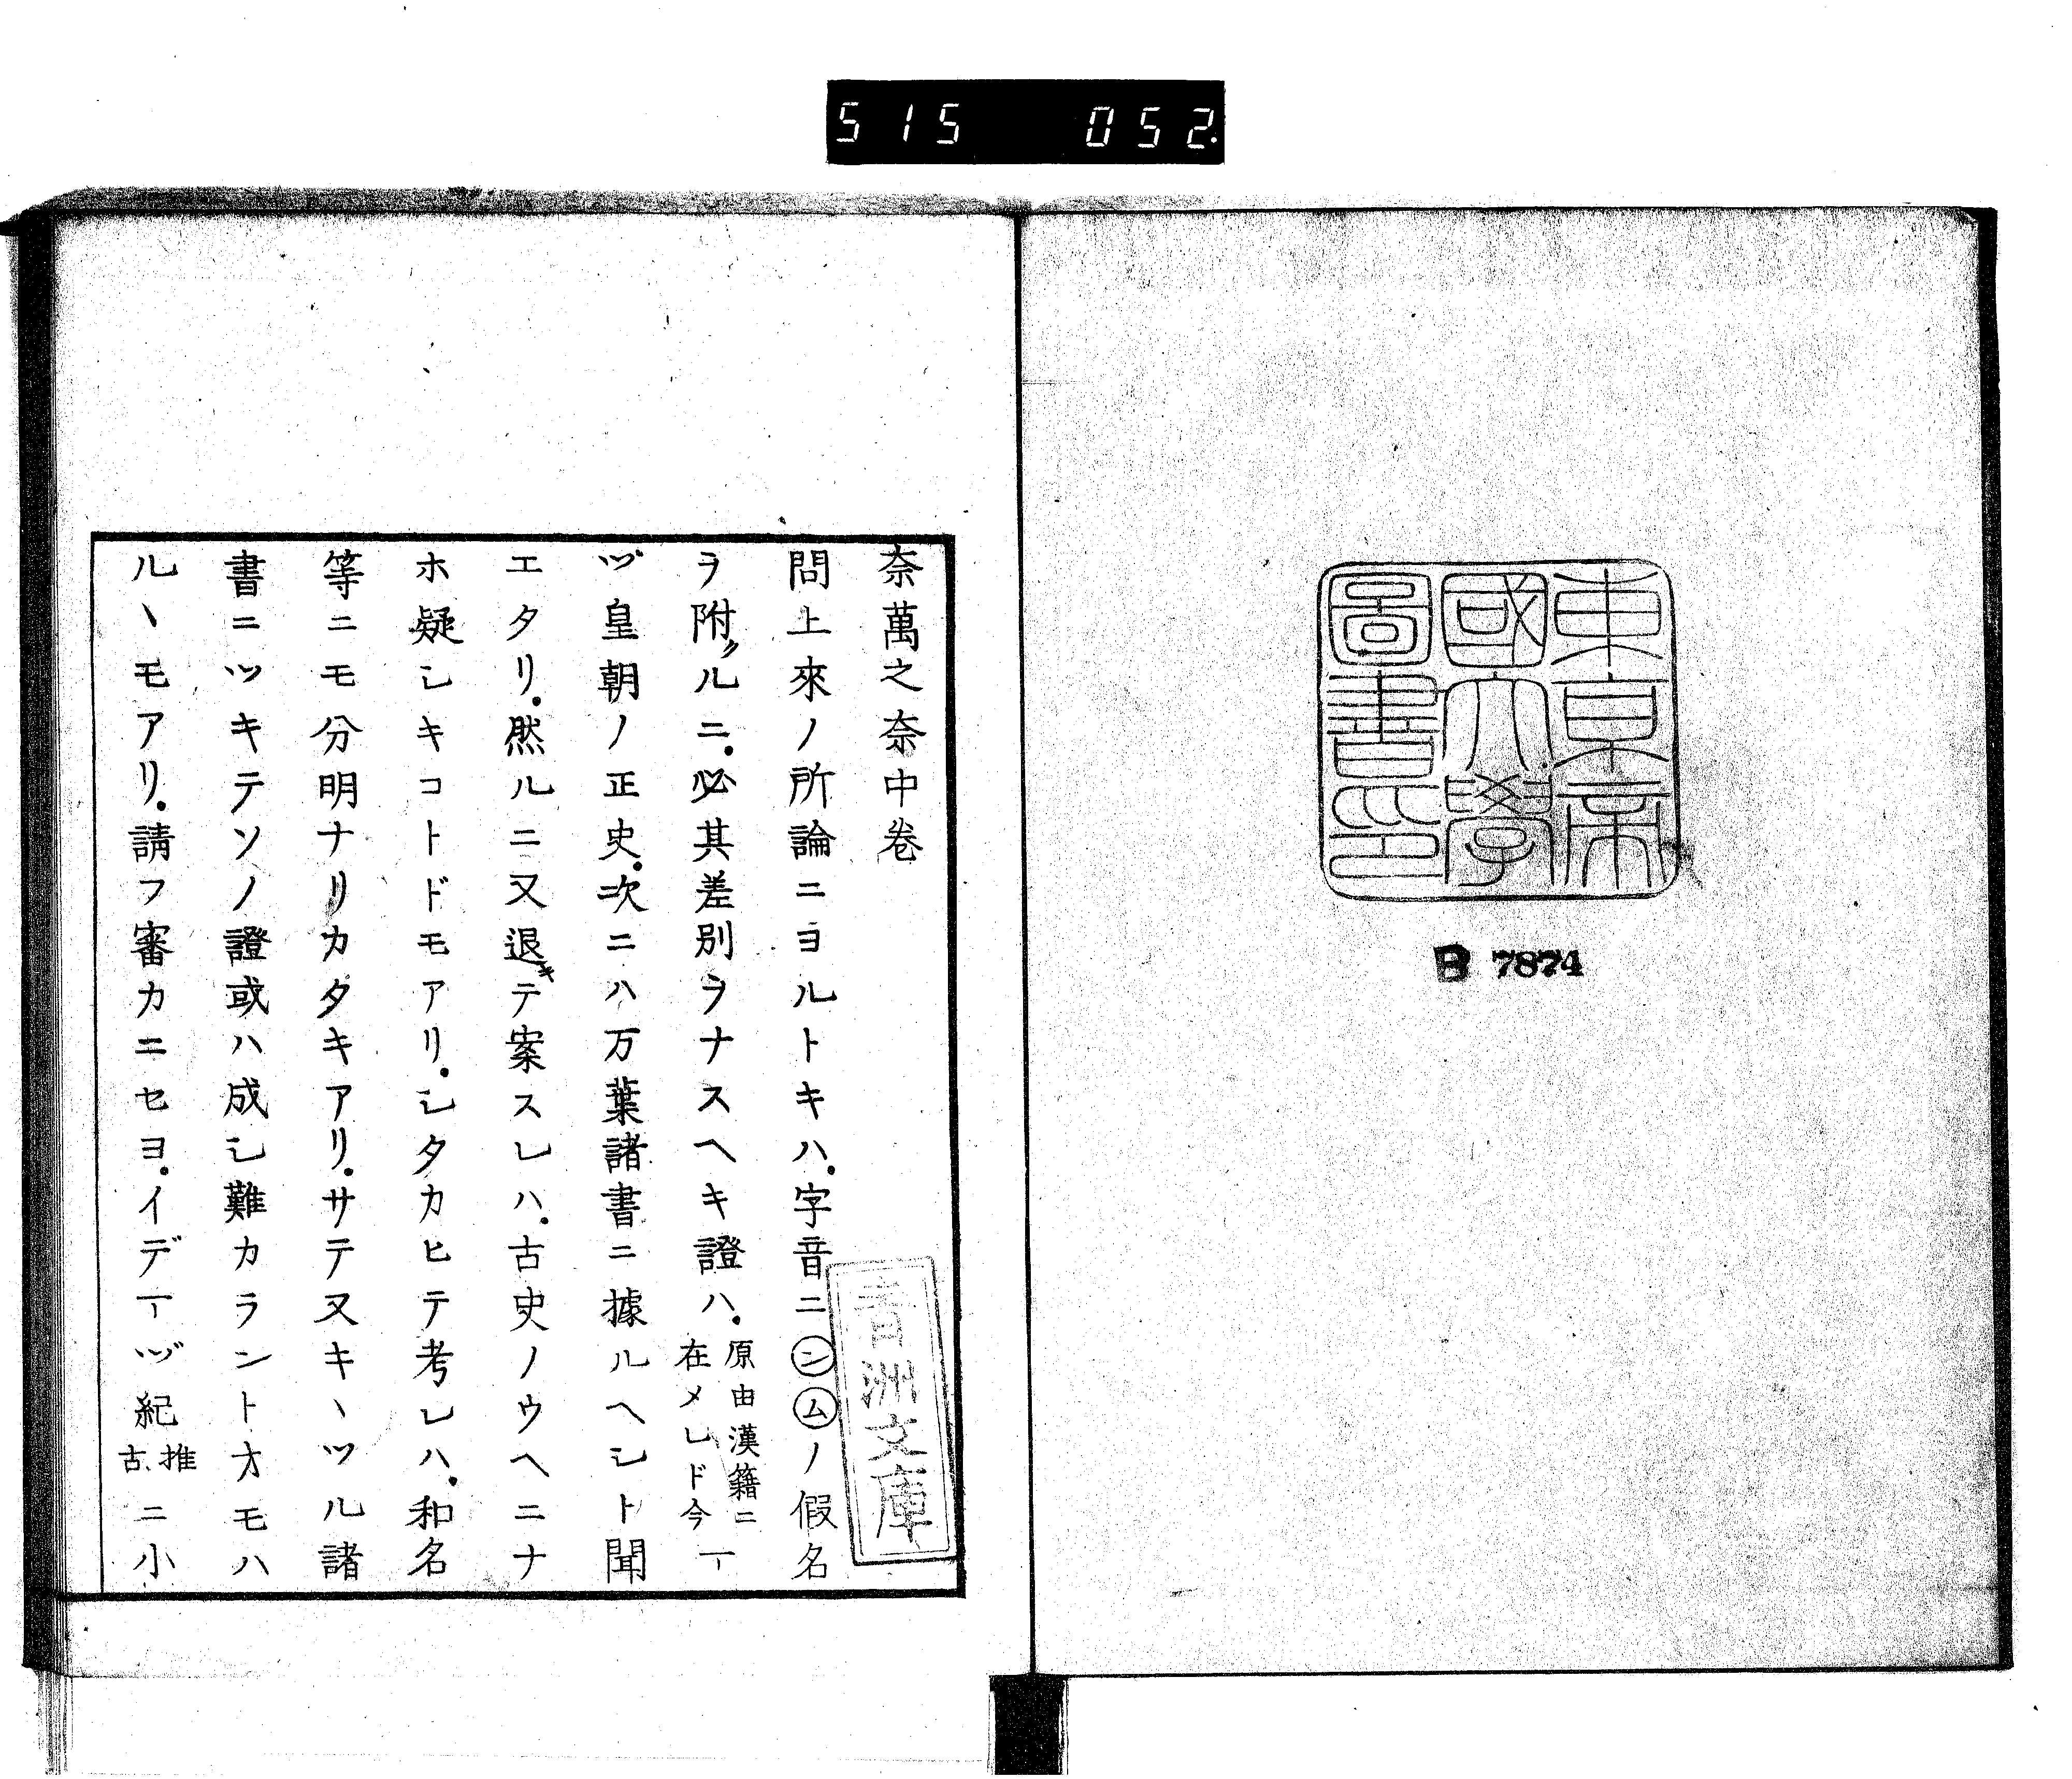 515 052
東京帝
國大學
圖書印
B 7874
奈萬之奈中卷
問上來ノ所論ニヨルトキハ.字音ニンムノ假名
ヲ附クルニ.必其差別ヲナスヘキ證ハ.原由漢籍ニ在メレド今一
ツ皇朝ノ正史.次ニハ万葉諸書ニ據ルヘシト聞
エタリ.然ルニ又退キテ案スレハ.古史ノウヘニナ
ホ疑シキコトドモアリ.シタカヒテ考レハ.和名
等ニモ分明ナリカタキアリ.サテヌキヽツル諸
書ニツキテソノ證或ハ成シ難カラントオモハ
ルヽモアリ.請フ審カニセヨ.イデ一ツ紀推古ニ小
青洲文庫